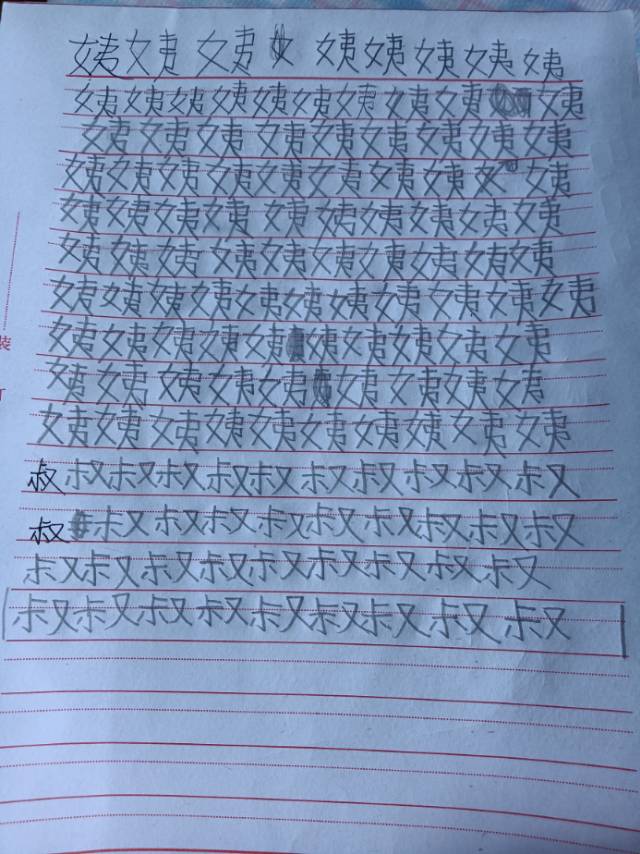 姨姨姨姨姨姨姨姨
姨姨姨姨姨姨姨姨姨姨
姨姨姨姨姨姨姨姨姨
姨姨姨姨姨姨姨姨姨
姨姨姨姨姨姨姨姨姨姨
姨姨姨姨姨姨姨姨姨姨
姨姨姨姨姨姨姨姨姨姨姨
姨姨姨姨姨姨姨姨姨姨
姨姨姨姨姨姨姨姨姨
姨姨姨姨姨姨姨姨姨姨
叔叔叔叔叔叔叔叔叔叔叔
叔叔叔叔叔叔叔叔叔叔
叔叔叔叔叔叔叔叔叔
叔叔叔叔叔叔叔叔叔
装